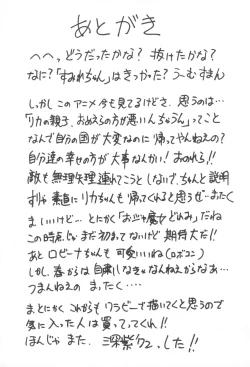 あとがき
へへっ どうだったかな? 抜けたかな?
なに?「すみれちゃん」はきつかった? うーむすまん
しかし このアニメ 今も見てるけどさ、思うのは…
「リカの親子、おめえらの方が悪いんちゃうん」ってこと
なんで自分の国が大変なのに 帰ってやんねえの?
自分達の幸せの方が大事なんかい! おのれら!!
敵も無理矢理連れてこうとしないで、ちゃんと説明
すりゃ 素直に リカちゃんも帰ってくれると思うぜ…まったく
ま、いいけど… とにかく「おジャ魔女どれみ」だね
この時点じゃ まだ初まってないけど 期待大だ!!
あと ロビーナちゃんも 可愛いいね(ロボコン)
しかし、春からは 自粛しなきゃなんねえからなあ…
つまんねえの まったく・・・・
まとにかく これからも ワラビーで描いてくと思うので
気に入った人は買ってってくれ!!
ほんじゃ また、 した!!